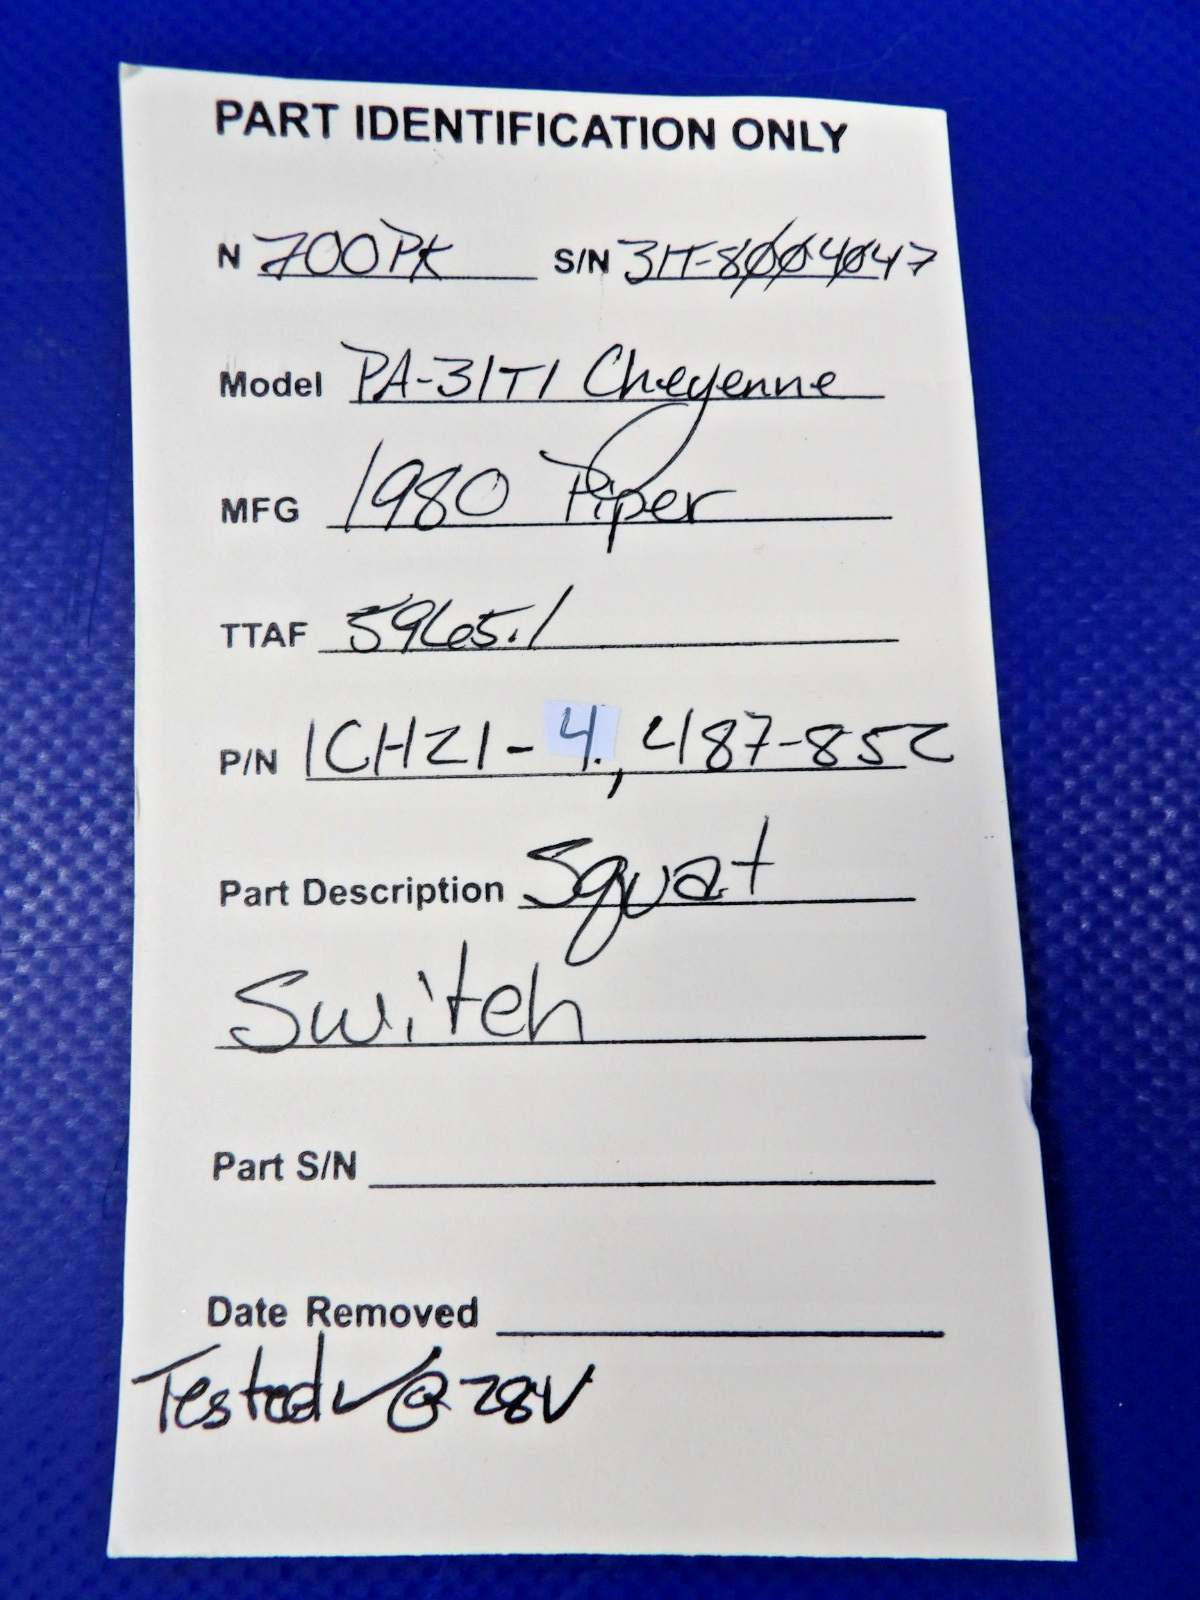 PART IDENTIFICATION ONLY
N 700PK S/N 31T-8004047
Model PA-31T1 Cheyenne
MFG 1980 Piper
TTAF 5965.1
P/N 1CH21-4., 487-852
Part Description Squat
Switch
Part S/N
Date Removed
Tested ✓ @ 28V